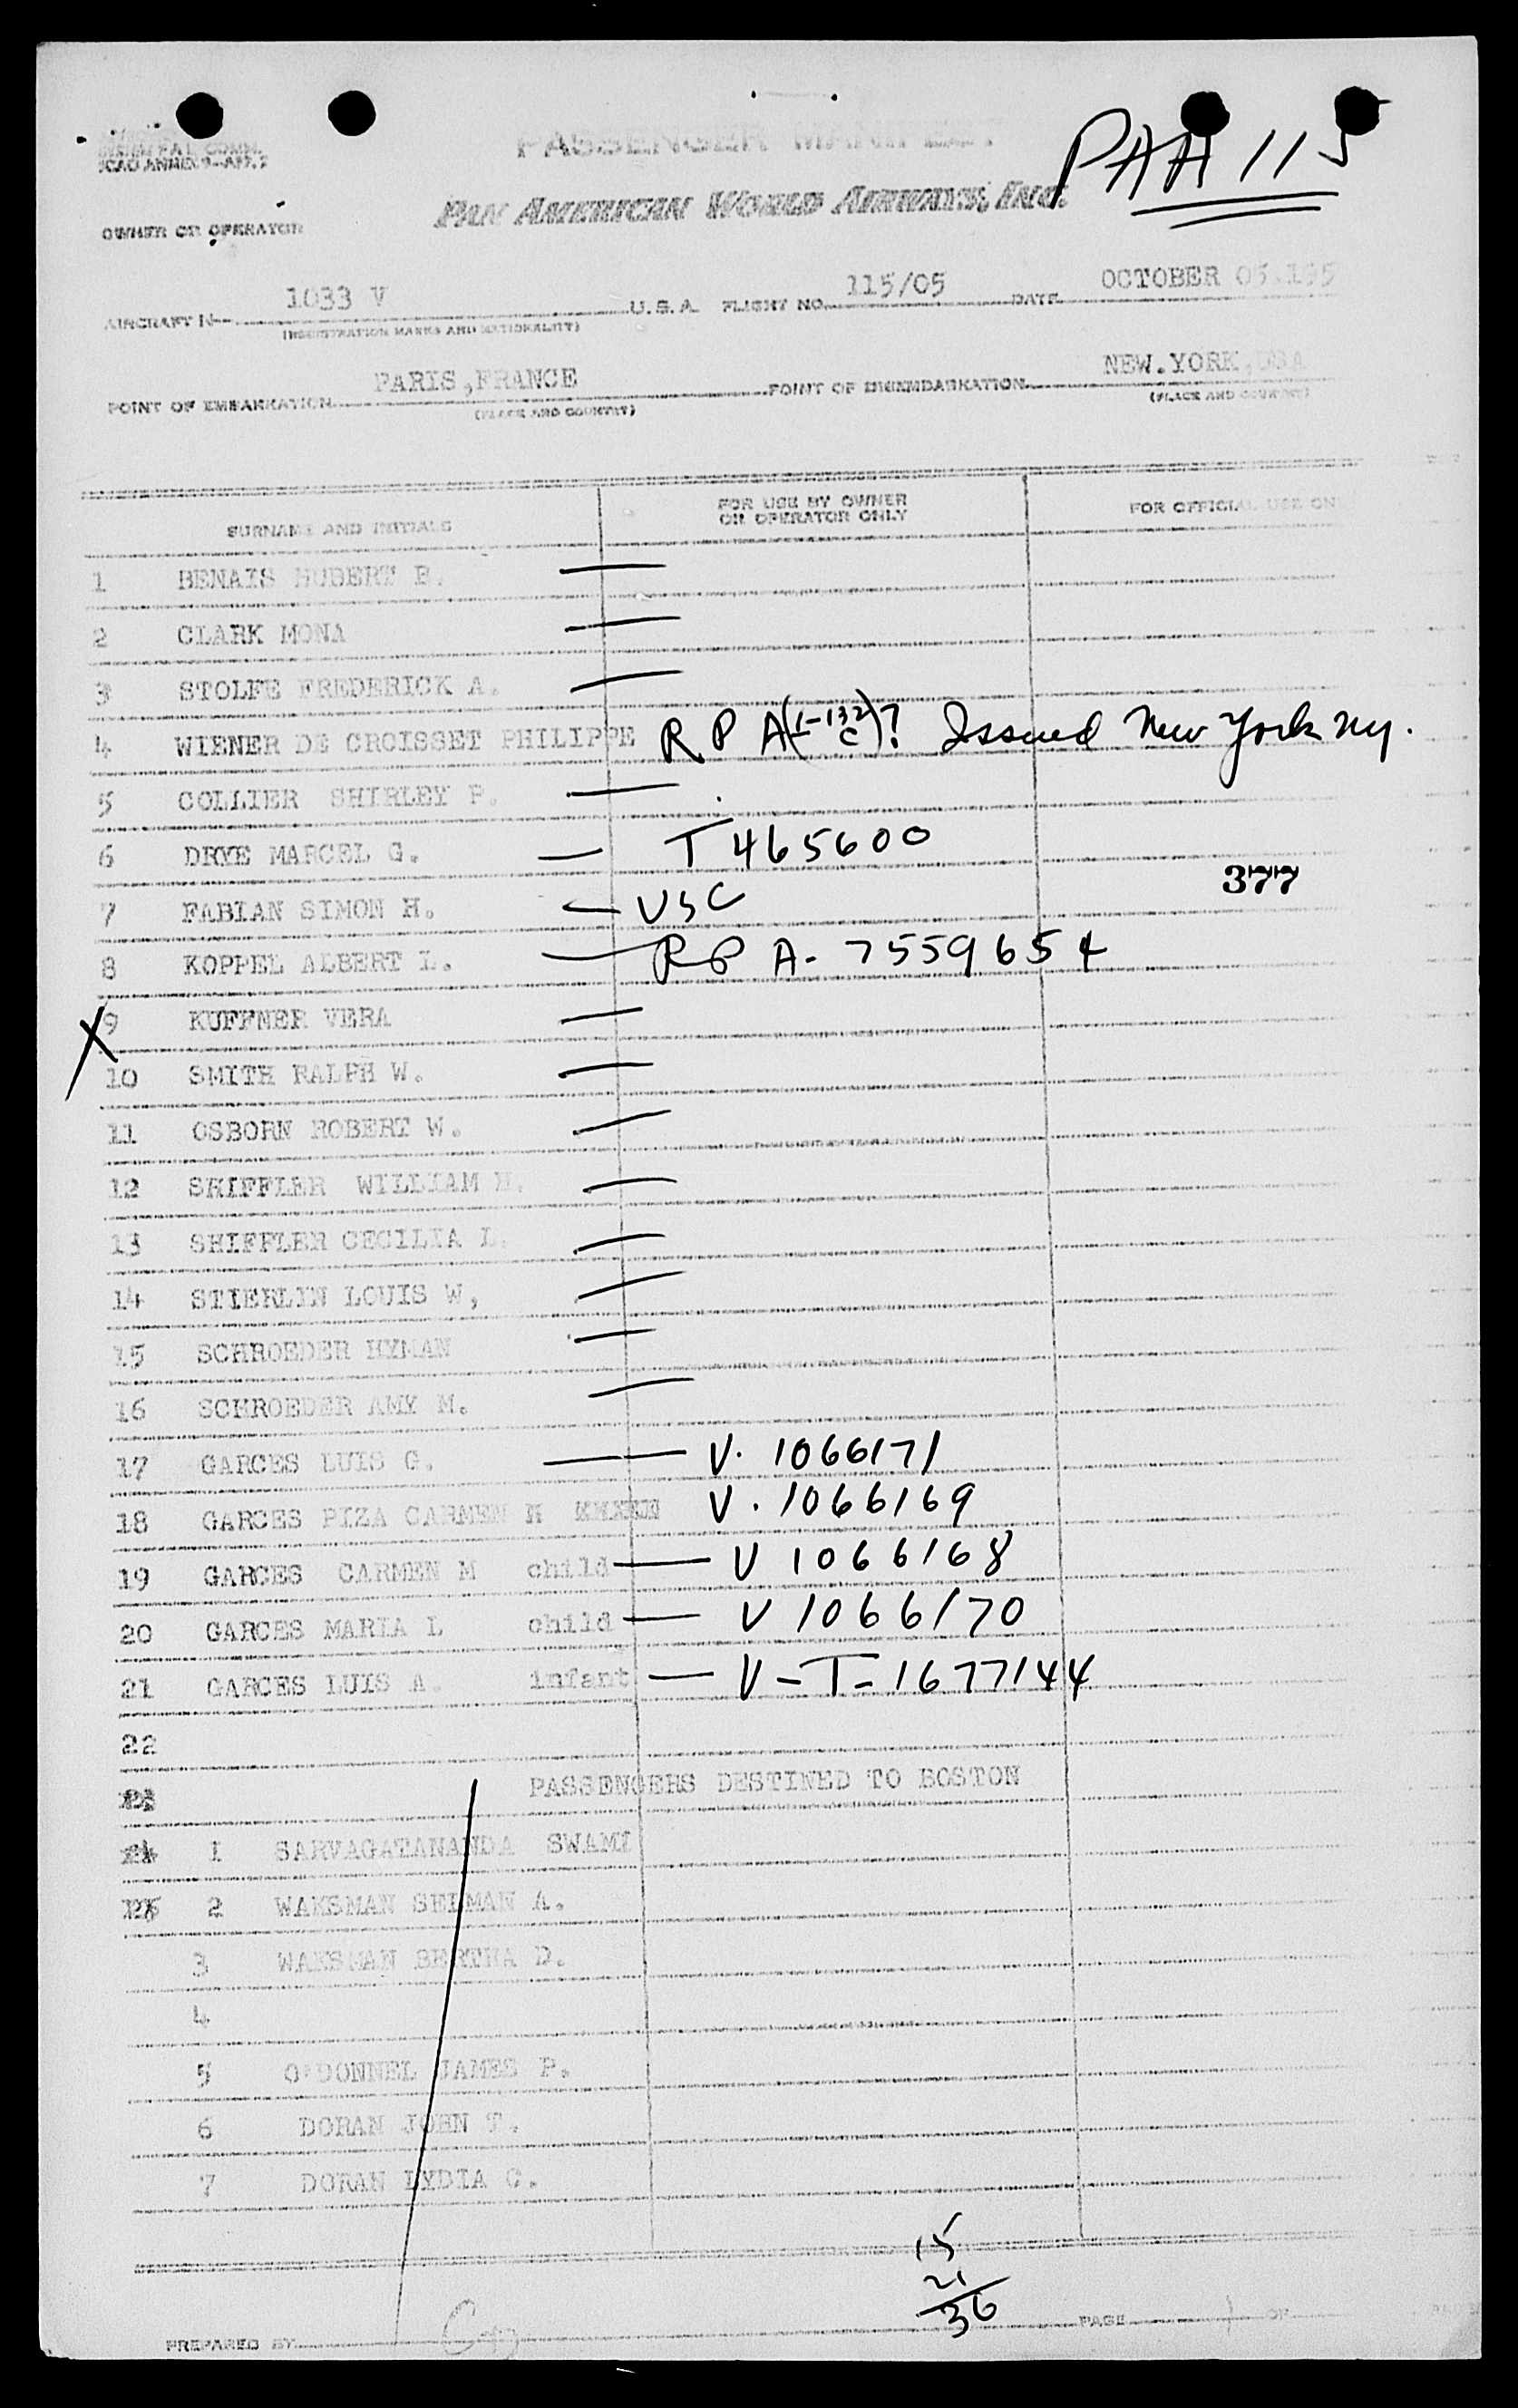 PAA 115
ICAO ANNEX 9-APP. 2
PASSENGER MANIFEST
OWNER OR OPERATOR PAN AMERICAN WORLD AIRWAYS, INC.
AIRCRAFT N— 1033 V U.S.A. FLIGHT NO. 115/05 DATE OCTOBER 05.195
(REGISTRATION MARKS AND NATIONALITY)
POINT OF EMBARKATION PARIS,FRANCE POINT OF DISEMBARKATION NEW.YORK,USA
(PLACE AND COUNTRY) (PLACE AND COUNTRY)
SURNAME AND INITIALS FOR USE BY OWNER OR OPERATOR ONLY FOR OFFICIAL USE ON
1 BENAIS HUBERT E. —
2 CLARK MONA —
3 STOLFE FREDERICK A. —
4 WIENER DE CROISSET PHILIPPE R P A(1-132 C)? Issued New York NY.
5 COLLIER SHIRLEY P. —
6 DRYE MARCEL G. — T 465600
377
7 FABIAN SIMON H. — USC
8 KOPPEL ALBERT L. — RP A- 7559654
X 9 KUFFNER VERA —
10 SMITH RALPH W. —
11 OSBORN ROBERT W. —
12 SHIFFLER WILLIAM H. —
13 SHIFFLER CECILIA L. —
14 STIERLIN LOUIS W, —
15 SCHROEDER HYMAN —
16 SCHROEDER AMY M. —
17 GARCES LUIS G. — V. 1066171
18 GARCES PIZA CARMEN V. 1066169
19 GARCES CARMEN M child — V 1066168
20 GARCES MARIA L child — V 1066170
21 GARCES LUIS A. infant — V-T-1677144
22
PASSENGERS DESTINED TO BOSTON
24 1 SARVAGATANANDA SWAMI
2 WAKSMAN SELMAN A.
3 WAKSMAN BERTHA D.
4
5 O'DONNEL JAMES P.
6 DORAN JOHN T.
7 DORAN LYDIA C.
15
21
36
PREPARED BY PAGE 1 OF